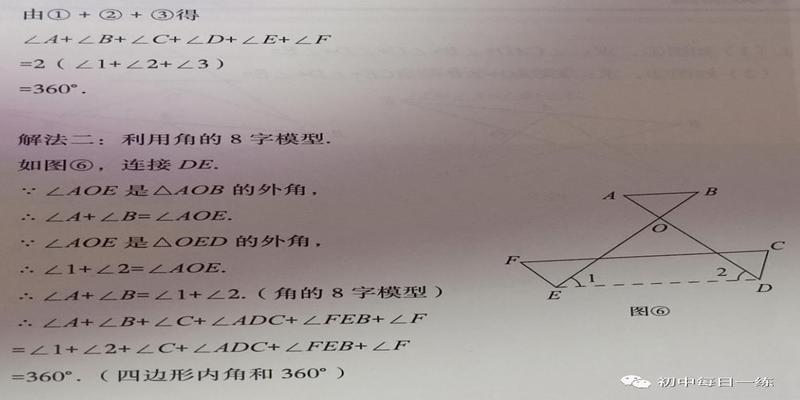 由① + ② + ③得
∠A+∠B+∠C+∠D+∠E+∠F
=2（∠1+∠2+∠3）
=360°.
解法二：利用角的 8 字模型.
如图⑥，连接 DE.
∵ ∠AOE 是△AOB 的外角，
∴ ∠A+∠B=∠AOE.
∵ ∠AOE 是△OED 的外角，
∴ ∠1+∠2=∠AOE.
∴ ∠A+∠B=∠1+∠2.（角的 8 字模型）
∴ ∠A+∠B+∠C+∠ADC+∠FEB+∠F
=∠1+∠2+∠C+∠ADC+∠FEB+∠F
=360°.（四边形内角和 360°）
A B
O
F C
1 2
E D
图⑥
初中每日一练